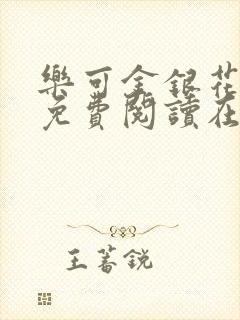 樂可金銀花
免費閱讀在
王蕃銳